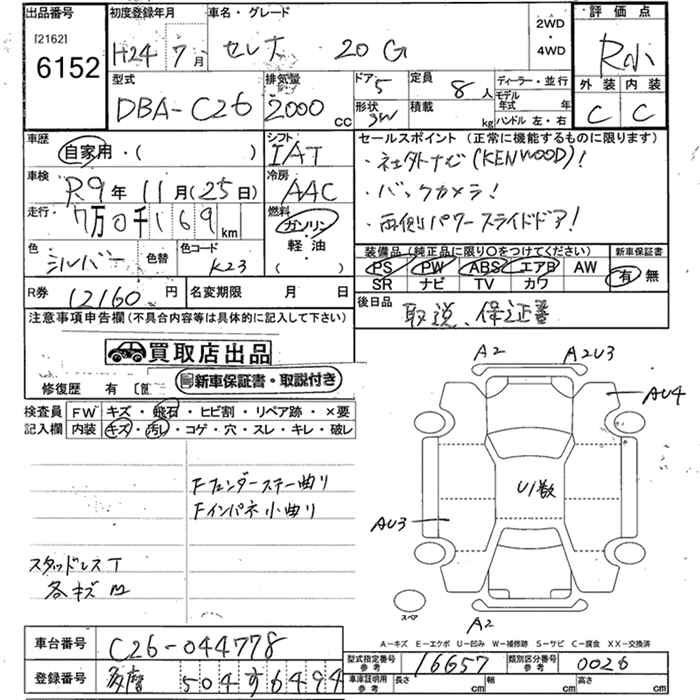 出品番号 初度登録年月 車名・グレード 2WD ・ 4WD 評価点
[2162] 6152 H24年7月 セレナ 20G R小
型式 排気量 ドア 5 定員 8人 ディーラー・並行 外装 内装
DBA-C26 2000cc 形状 SW 積載 kg モデル年式 年 ハンドル 左・右 C C
車歴 シフト セールスポイント (正常に機能するものに限ります)
自家用・( ) IAT ・社外ナビ(KENWOOD)!
車検 冷房 ・バックカメラ!
R9年11月(25日) AAC ・両側パワースライドドア!
走行 燃料
7万0千169km ガソリン・軽油( )
色 シルバー 色替 色コード K23
装備品(純正品に限り○をつけてください) 新車保証書
PS PW ABS エアB AW 有 無
SR ナビ TV カワ
R券 12160円 名変期限 月 日
後日品 取説、保証書
注意事項申告欄(不具合内容等は具体的に記入して下さい)
買取店出品
修復歴 有 新車保証書・取説付き
検査員記入欄 FW キズ・飛石・ヒビ割・リペア跡・×要
内装 キズ・汚レ・コゲ・穴・スレ・キレ・破レ
Fフェンダーステー曲り
Fインパネ小曲り
スタッドレスT
各キズM
A2 A2U3
AU4
U1数
AU3
スペア
A2
A-キズ E-エクボ U-凹み W-補修跡 S-サビ C-腐食 XX-交換済
車台番号 C26-044778
登録番号 多摩 504 す 6494
型式指定番号 参考 16657 類別区分番号 参考 0026
車庫証明用 参考 長さ cm 幅 cm 高さ cm